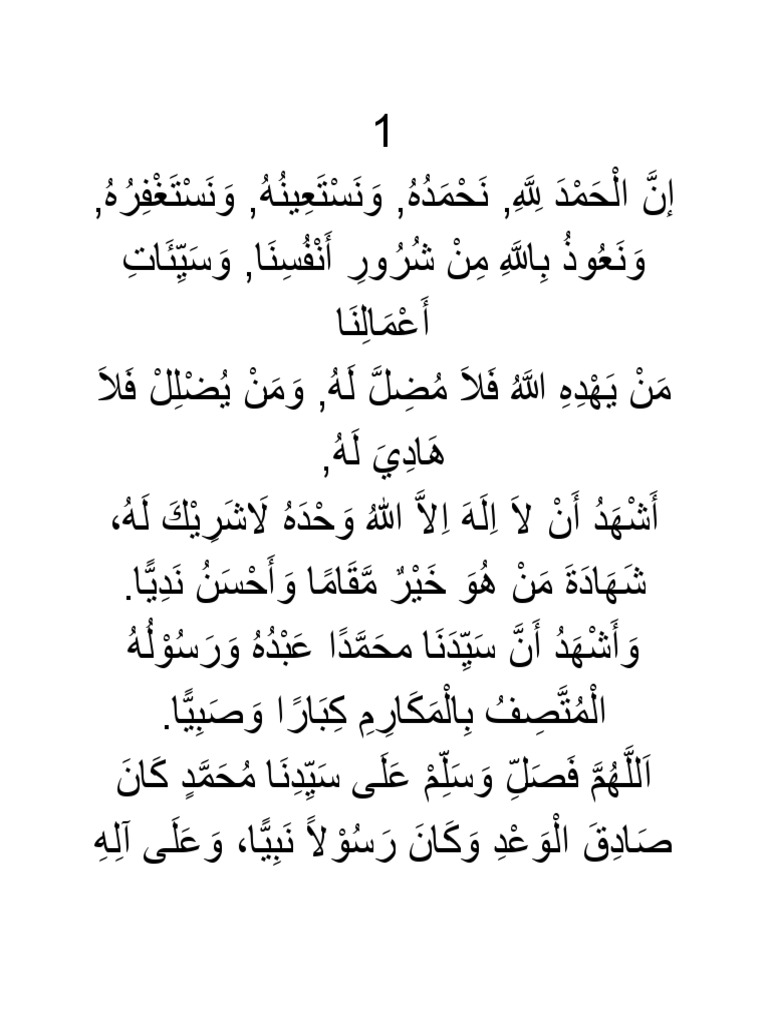 1
إنَّ الْحَمْدَ لِلَّهِ, نَحْمَدُهُ, وَنَسْتَعِينُهُ, وَنَسْتَغْفِرُهُ,
وَنَعُوذُ بِاللَّهِ مِنْ شُرُورِ أَنْفُسِنَا, وَسَيِّئَاتِ
أَعْمَالِنَا
مَنْ يَهْدِهِ اللَّهُ فَلاَ مُضِلَّ لَهُ, وَمَنْ يُضْلِلْ فَلاَ
هَادِيَ لَهُ,
أَشْهَدُ أَنْ لاَ اِلَهَ اِلاَّ اللهُ وَحْدَهُ لَاشَرِيْكَ لَهُ،
شَهَادَةَ مَنْ هُوَ خَيْرٌ مَّقَامًا وَأَحْسَنُ نَدِيًّا.
وَأَشْهَدُ أَنَّ سَيِّدَنَا محَمَّدًا عَبْدُهُ وَرَسُوْلُهُ
الْمُتَّصِفُ بِالْمَكَارِمِ كِبَارًا وَصَبِيًّا.
اَللَّهُمَّ فَصَلِّ وَسَلِّمْ عَلَى سَيِّدِنَا مُحَمَّدٍ كَانَ
صَادِقَ الْوَعْدِ وَكَانَ رَسُوْلاً نَبِيًّا، وَعَلَى آلِهِ